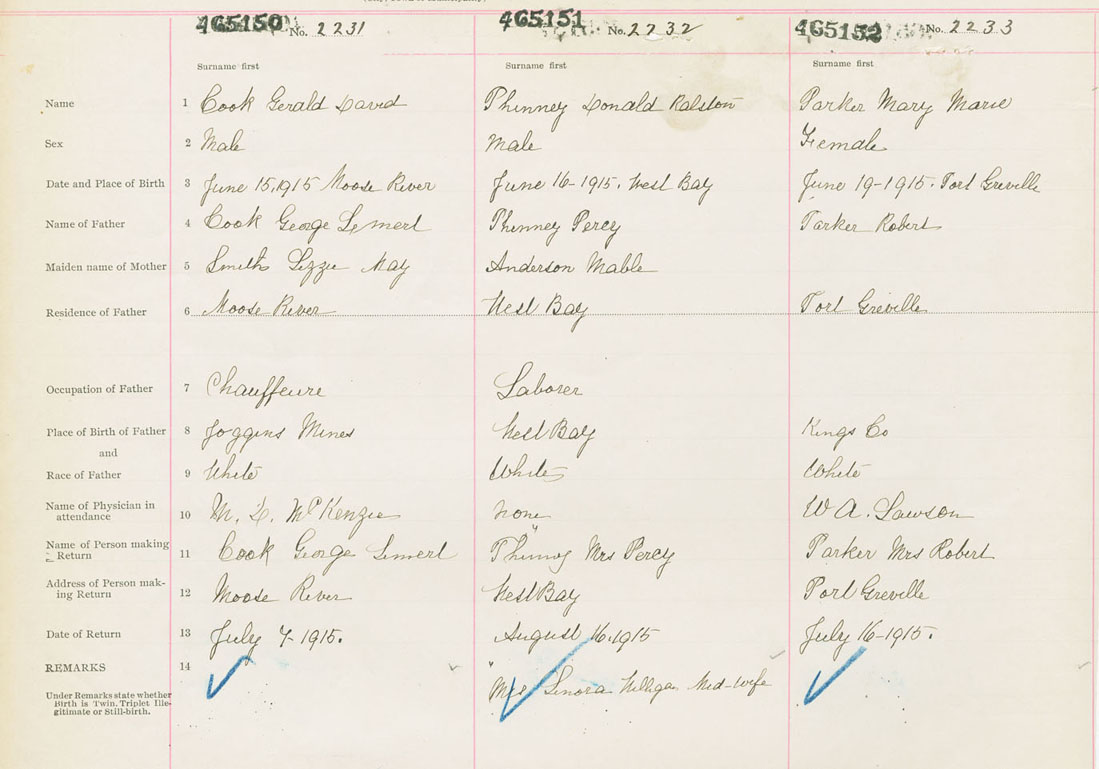 465150 No. 2231 465151 No. 2232 465152 No. 2233
Surname first Surname first Surname first
Name 1 Cook Gerald David Phinney Donald Ralston Parker Mary Marie
Sex 2 Male Male Female
Date and Place of Birth 3 June 15, 1915 Moose River June 16-1915. West Bay June 19-1915. Port Greville
Name of Father 4 Cook George Lemert Phinney Percy Parker Robert
Maiden name of Mother 5 Smith Lizzie May Anderson Mable
Residence of Father 6 Moose River West Bay Port Greville
Occupation of Father 7 Chauffeure Laborer
Place of Birth of Father 8 Joggins Mines West Bay Kings Co
and
Race of Father 9 White White White
Name of Physician in
attendance 10 M. D. McKenzie none W A. Lawson
Name of Person making
Return 11 Cook George Lemert Phinney Mrs Percy Parker Mrs Robert
Address of Person mak-
ing Return 12 Moose River West Bay Port Greville
Date of Return 13 July 7-1915. August 16, 1915 July 16-1915.
REMARKS 14
Under Remarks state whether
Birth is Twin. Triplet Ille-
gitimate or Still-birth.
Mrs Lenora Mid-wife